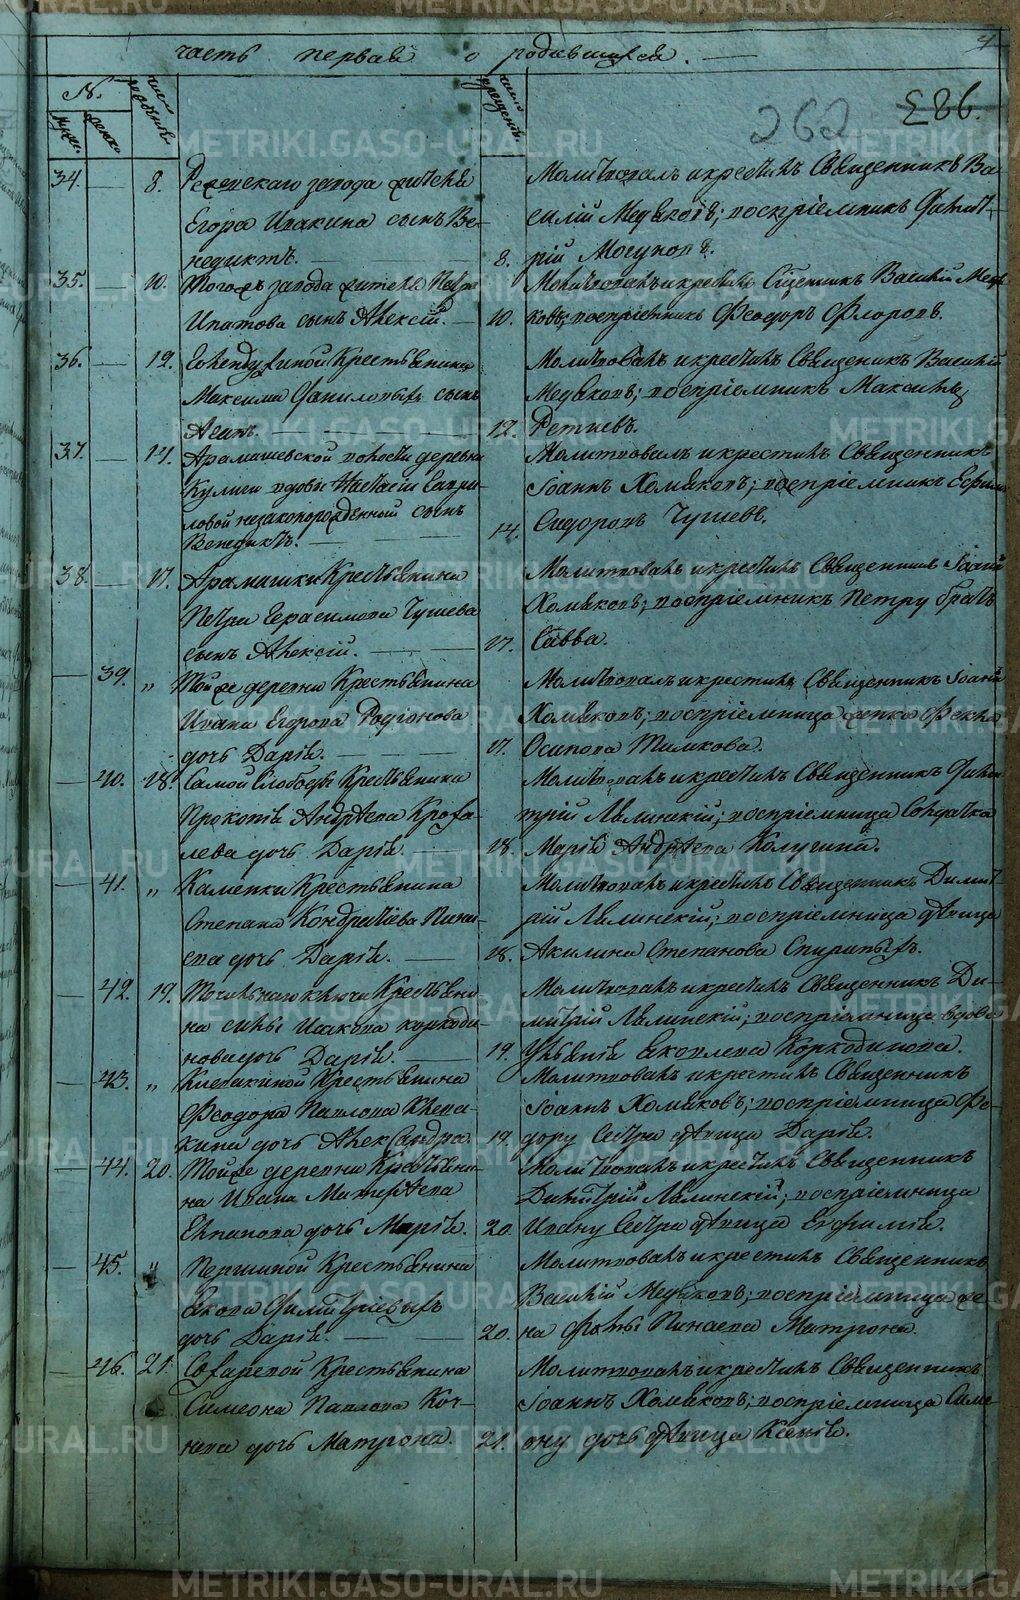 часть первая о родившихся.
262
286.
№.
34. 8. Режевскаго завода житель
Егора Ипакина сынъ Ве-
недиктъ. 8.
Молитвовалъ и крестилъ Священникъ Ва-
силій Медяковъ; воспріемникъ Димит-
рій Мосуновъ.
35. 10. Тогожъ завода жителя Петра
Ипатова сынъ Алексій. 10.
Молитвовалъ и крестилъ Сщенникъ Василій Медя-
ковъ; воспріемникъ Феодоръ Флоровъ.
36. 12. Крестьянина
Максима Даниловыхъ сынъ
12.
Молитвовалъ и крестилъ Священникъ Василій
Медяковъ; воспріемникъ Максимъ
37. 14. Арамашевской волости деревни
Кулиги вдовы Настасіи Гаври-
ловой незаконорожденный сынъ
Венедиктъ. 14.
Молитвовалъ и крестилъ Священникъ
Іоаннъ Хомяковъ; воспріемникъ Ефимъ
Сидоровъ Чушевъ.
38. 17. Арамашки Крестьянина
Петра Герасимова Чушева
сынъ Алексій. 17.
Молитвовалъ и крестилъ Священникъ Іоаннъ
Хомяковъ; воспріемникъ Петру братъ
Савва.
39. " Той же деревни Крестьянина
Ивана Егорова Родіонова
дочь Дарія. 17.
Молитвовалъ и крестилъ Священникъ Іоаннъ
Хомяковъ; воспріемница девка Фекла
Осипова Тимкова.
40. 18. Самой Слободы Крестьянина
Прокопія Андрѣева Крова-
лева дочь Дарія. 18.
Молитвовалъ и крестилъ Священникъ Дими-
трій Ляпинскій; воспріемница Солдатка
Марія Андрѣева Колугина.
41. " Каменки Крестьянина
Степана Кондратіева Пина-
ева дочь Дарія. 18.
Молитвовалъ и крестилъ Священникъ Димит-
рій Ляпинскій; воспріемница дѣвица
Акилина Степанова
42. 19. Точильнаго ключа Крестьяни-
на Силы Исакова Коркоди-
нова дочь Дарія. 19.
Молитвовалъ и крестилъ Священникъ Ди-
митрій Ляпинскій; воспріемница вдова
Ульянія Яковлева Коркодинова.
43. " Клевакиной Крестьянина
Феодора Павлова Клева-
кина дочь Александра. 19.
Молитвовалъ и крестилъ Священникъ
Іоаннъ Хомяковъ; воспріемница Фе-
дору Сестра дѣвица Дарія.
44. 20. Той же деревни Крестьяни-
на Ивана Матвѣева
дочь Марія. 20.
Молитвовалъ и крестилъ Священникъ
Димитрій Ляпинскій; воспріемница
Ивану Сестра дѣвица Евфимія.
45. " Першиной Крестьянина
Якова Димитріевыхъ
дочь Дарія. 20.
Молитвовалъ и крестилъ Священникъ
Василій Медяковъ; воспріемница же-
на Фомы Пинаева Матрона.
46. 21. Сохаревой Крестьянина
Симеона Павлова Коч-
нева дочь Матрона. 21.
Молитвовалъ и крестилъ Священникъ
Іоаннъ Хомяковъ; воспріемница Симе-
ону дочь дѣвица Ксенія.
METRIKI.GASO-URAL.RU